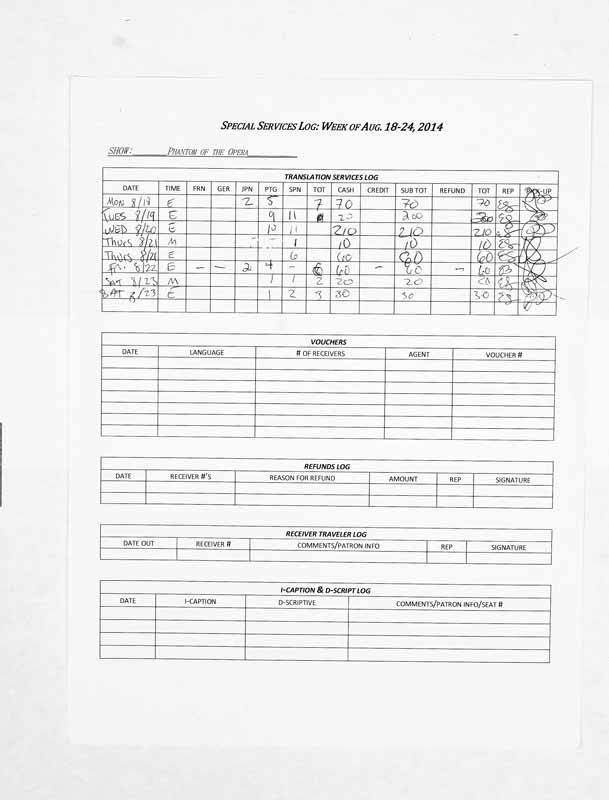 SPECIAL SERVICES LOG: WEEK OF AUG. 18-24, 2014
SHOW: PHANTOM OF THE OPERA
TRANSLATION SERVICES LOG
DATE TIME FRN GER JPN PTG SPN TOT CASH CREDIT SUB TOT REFUND TOT REP PICK-UP
MON 8/18 E 2 5 7 70 70 70 EG
TUES 8/19 E 9 11 20 200 EG
WED 8/20 E 10 11 210 210 210 EG
THURS 8/21 M 1 10 10 10 EG
THURS 8/21 E 6 60 60 60 EG
Fri. 8/22 E - - 2 4 - 6 60 - 60 - 60
SAT 8/23 M 1 1 2 20 20 EG
SAT 8/23 E 1 2 3 30 30 30 EG
VOUCHERS
DATE LANGUAGE # OF RECEIVERS AGENT VOUCHER #
REFUNDS LOG
DATE RECEIVER #'S REASON FOR REFUND AMOUNT REP SIGNATURE
RECEIVER TRAVELER LOG
DATE OUT RECEIVER # COMMENTS/PATRON INFO REP SIGNATURE
I-CAPTION & D-SCRIPT LOG
DATE I-CAPTION D-SCRIPTIVE COMMENTS/PATRON INFO/SEAT #